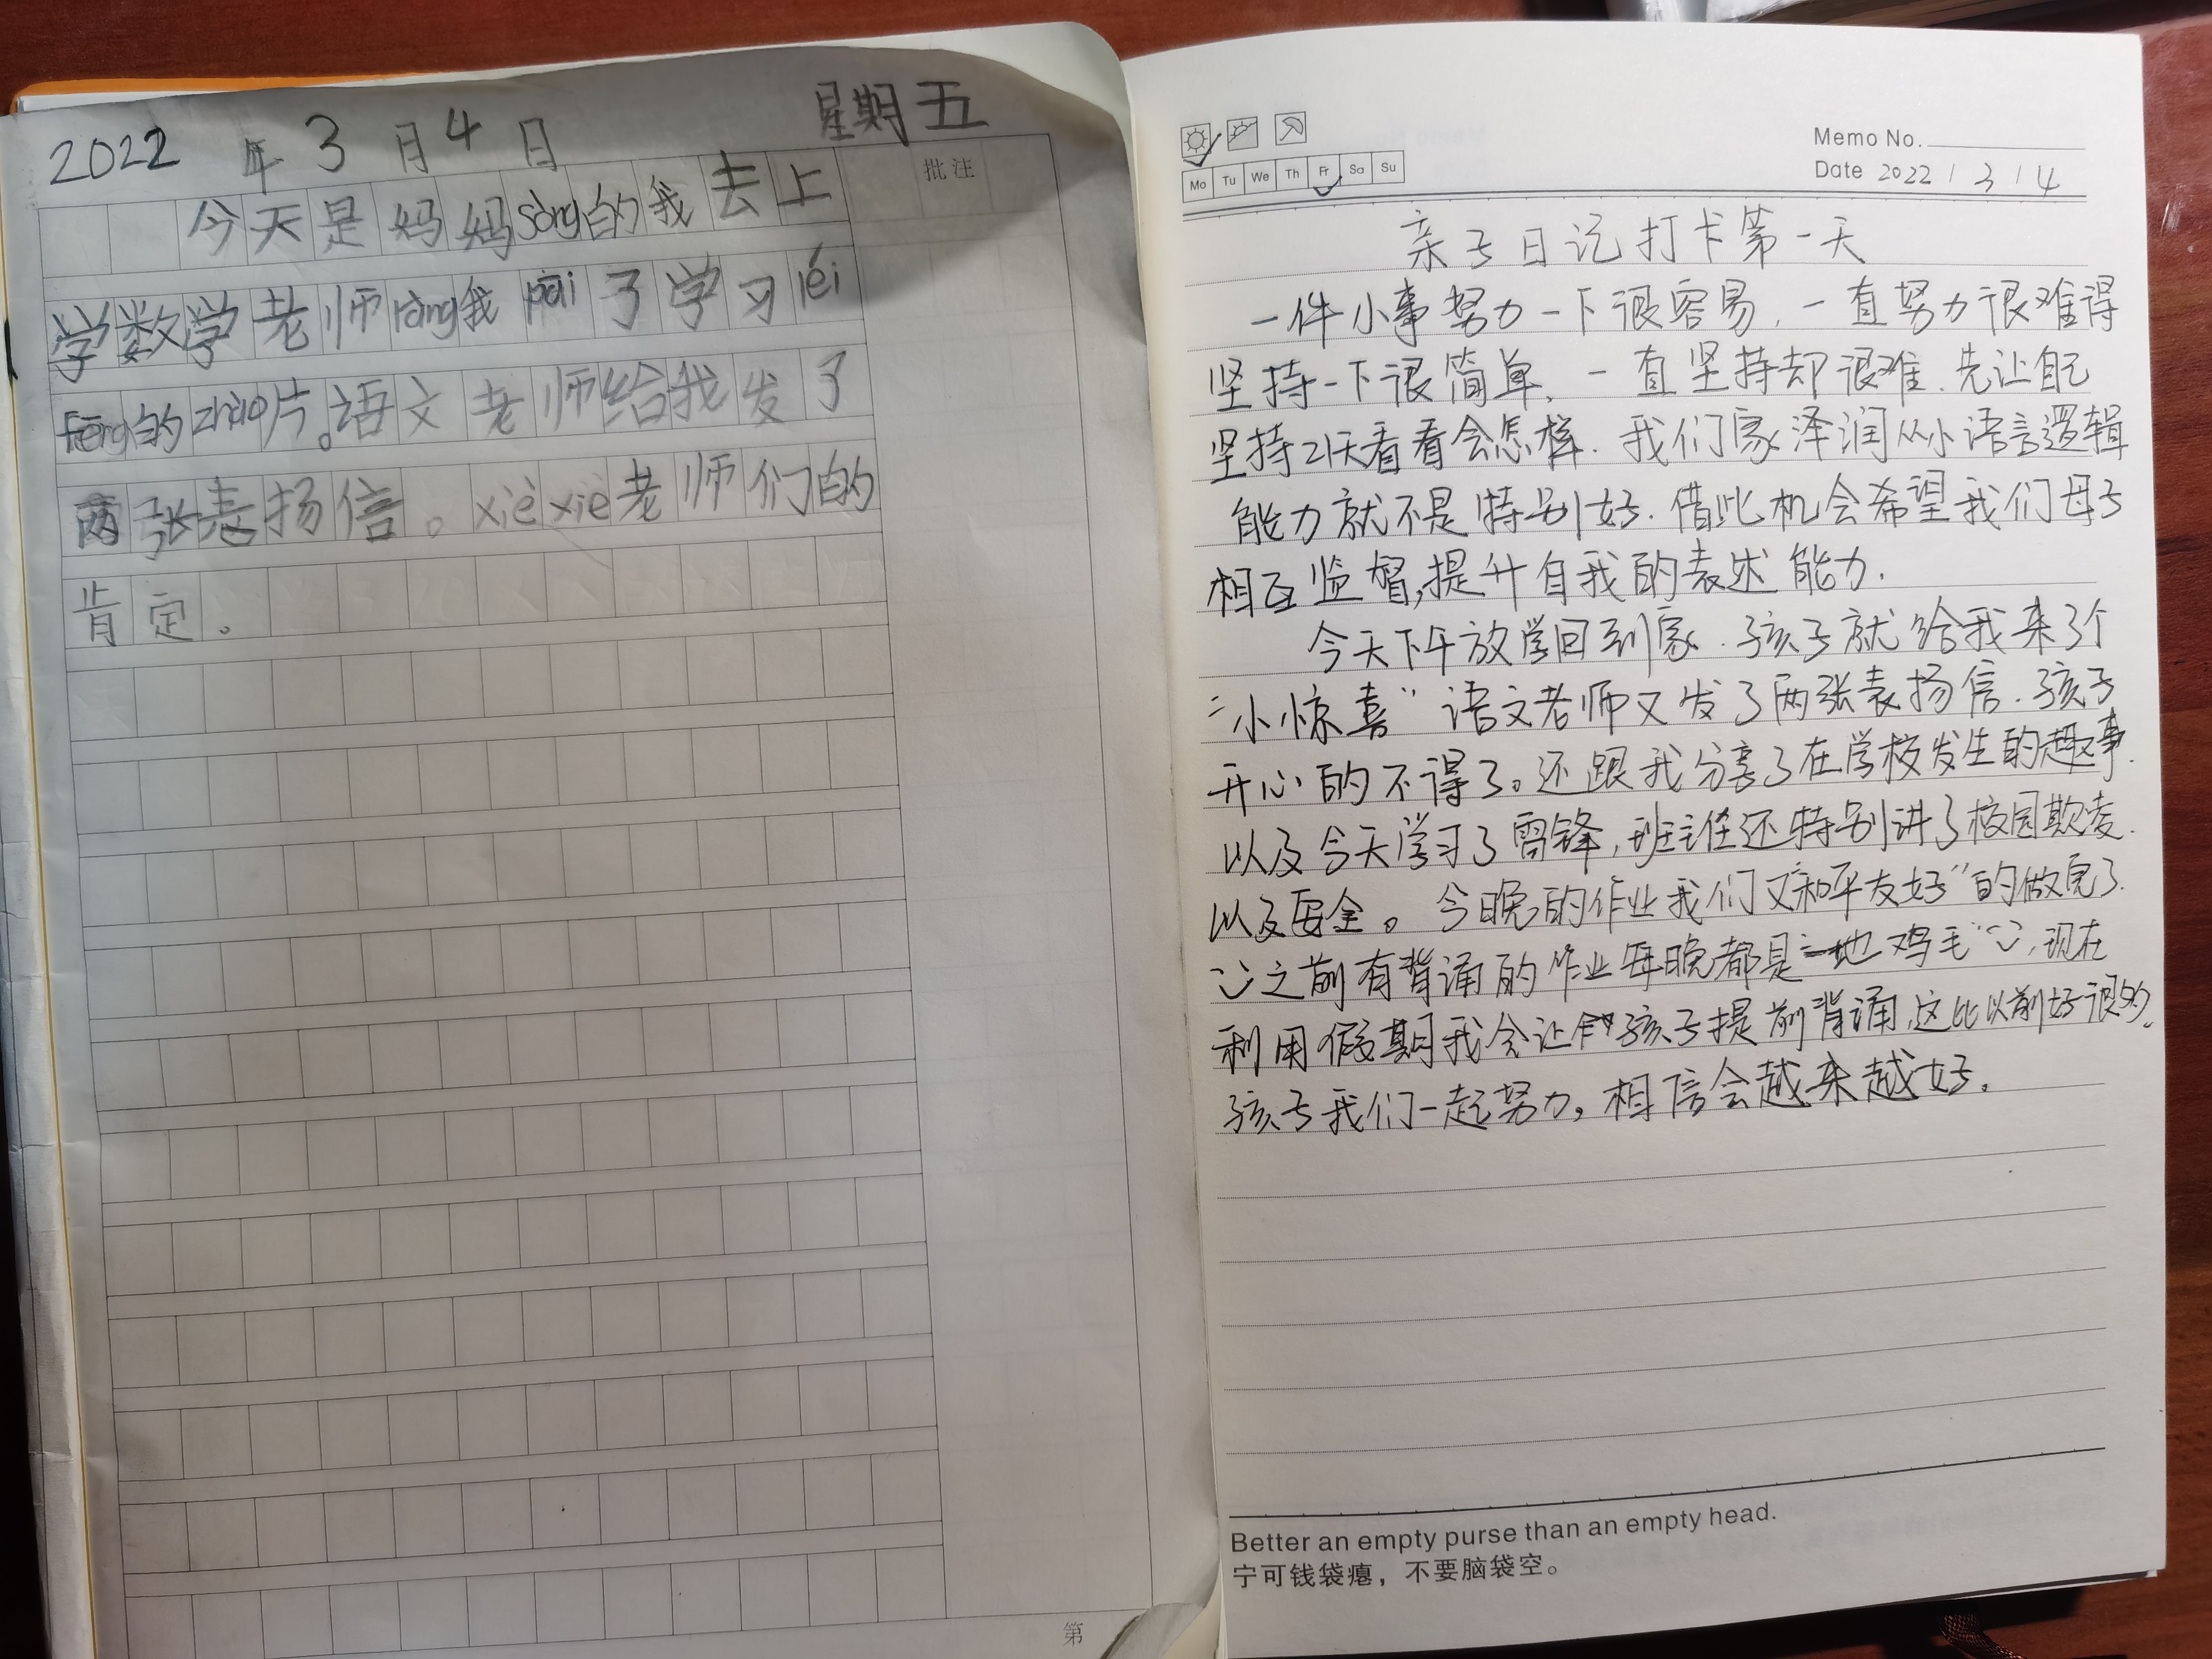 2022 年 3 月 4 日 星期五
批注
今天是妈妈sòng的我去上
学数学老师ràng我pāi了学习léi
Fēng的zhào片。语文老师给我发了
两张表扬信。xiè xie老师们的
肯定。
第
Memo No.
Mo Tu We Th Fr Sa Su
Date 2022 / 3 / 4
亲子日记打卡第一天
一件小事努力一下很容易,一直努力很难得
坚持一下很简单,一直坚持却很难.先让自己
坚持21天看看会怎样.我们家泽润从小语言逻辑
能力就不是特别好.借此机会希望我们母子
相互监督,提升自我的表述能力.
今天下午放学回到家.孩子就给我来了个
"小惊喜"语文老师又发了两张表扬信.孩子
开心的不得了。还跟我分享了在学校发生的趣事.
以及今天学习了雷锋,班主任还特别讲了校园欺凌.
以及安全。今晚的作业我们又"和平友好"的做完了.
之前有背诵的作业每晚都是"一地鸡毛",现在
利用假期我会让孩子提前背诵,这比以前好很多.
孩子我们一起努力,相信会越来越好.
Better an empty purse than an empty head.
宁可钱袋瘪，不要脑袋空。